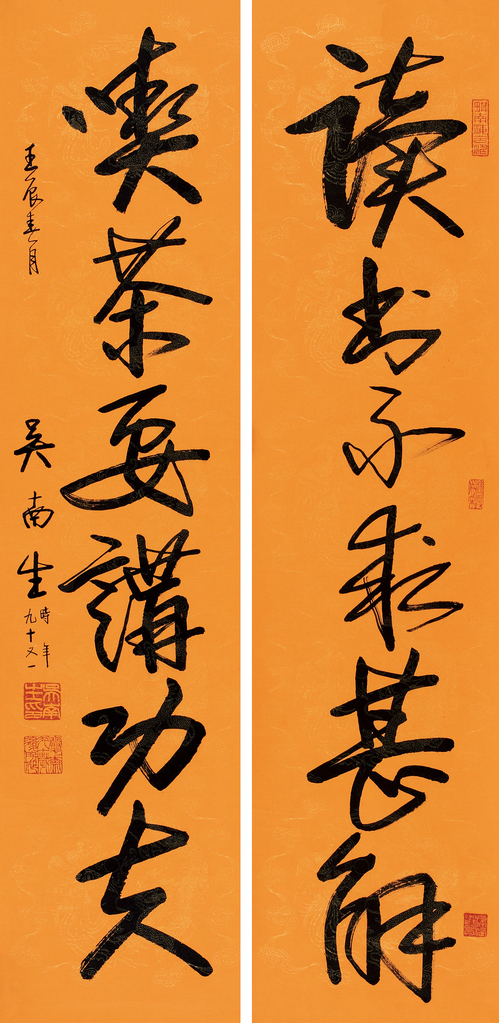 读书不求甚解
喫茶要講功夫
壬辰春月
吴南生
時年
九十又一